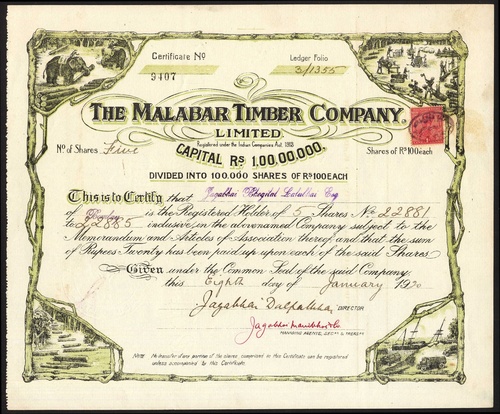 Certificate No Ledger Folio
9407 3/1355
THE MALABAR TIMBER COMPANY,
LIMITED.
Registered under the Indian Companies Act, 1913
No of Shares Five CAPITAL Rs 1,00,00,000. Shares of Rs 100 each
DIVIDED INTO 100,000 SHARES OF Rs 100 EACH
This is to Certify that Jagabhai Bhogilal Lalubhai Esq
of Bombay is the Registered Holder of 5 Shares No 22881
to 22885 inclusive in the abovenamed Company subject to the
Memorandum and Articles of Association thereof and that the sum
of Rupees Twenty has been paid up upon each of the said Shares
Given under the Common Seal of the said Company
this Eighth day of January 1920
Jagabhai Dalpatbhai DIRECTOR
Jagabhai Manibhai & Co.
MANAGING AGENTS, SECYS & TREASRS
NOTE No transfer of any portion of the shares comprised in this Certificate can be registered
unless accompanied by this Certificate.